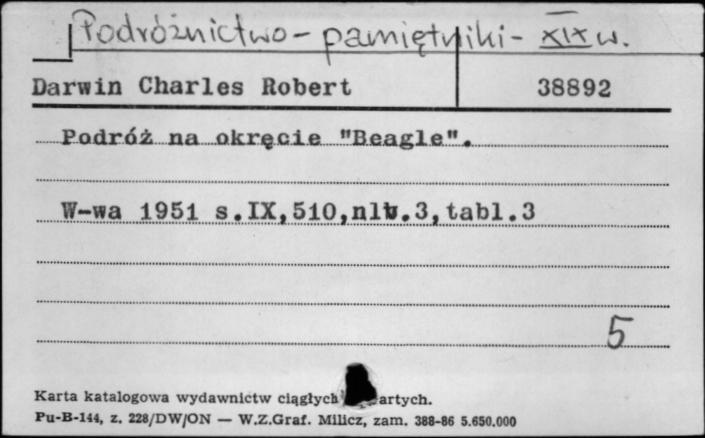 Podróżnictwo - pamiętniki - XIX w.
Darwin Charles Robert 38892
Podróż na okręcie "Beagle".
W-wa 1951 s.IX,510,nlb.3,tabl.3
5
Karta katalogowa wydawnictw ciągłych artych.
Pu-B-144, z. 228/DW/ON — W.Z.Graf. Milicz, zam. 388-86 5.650.000